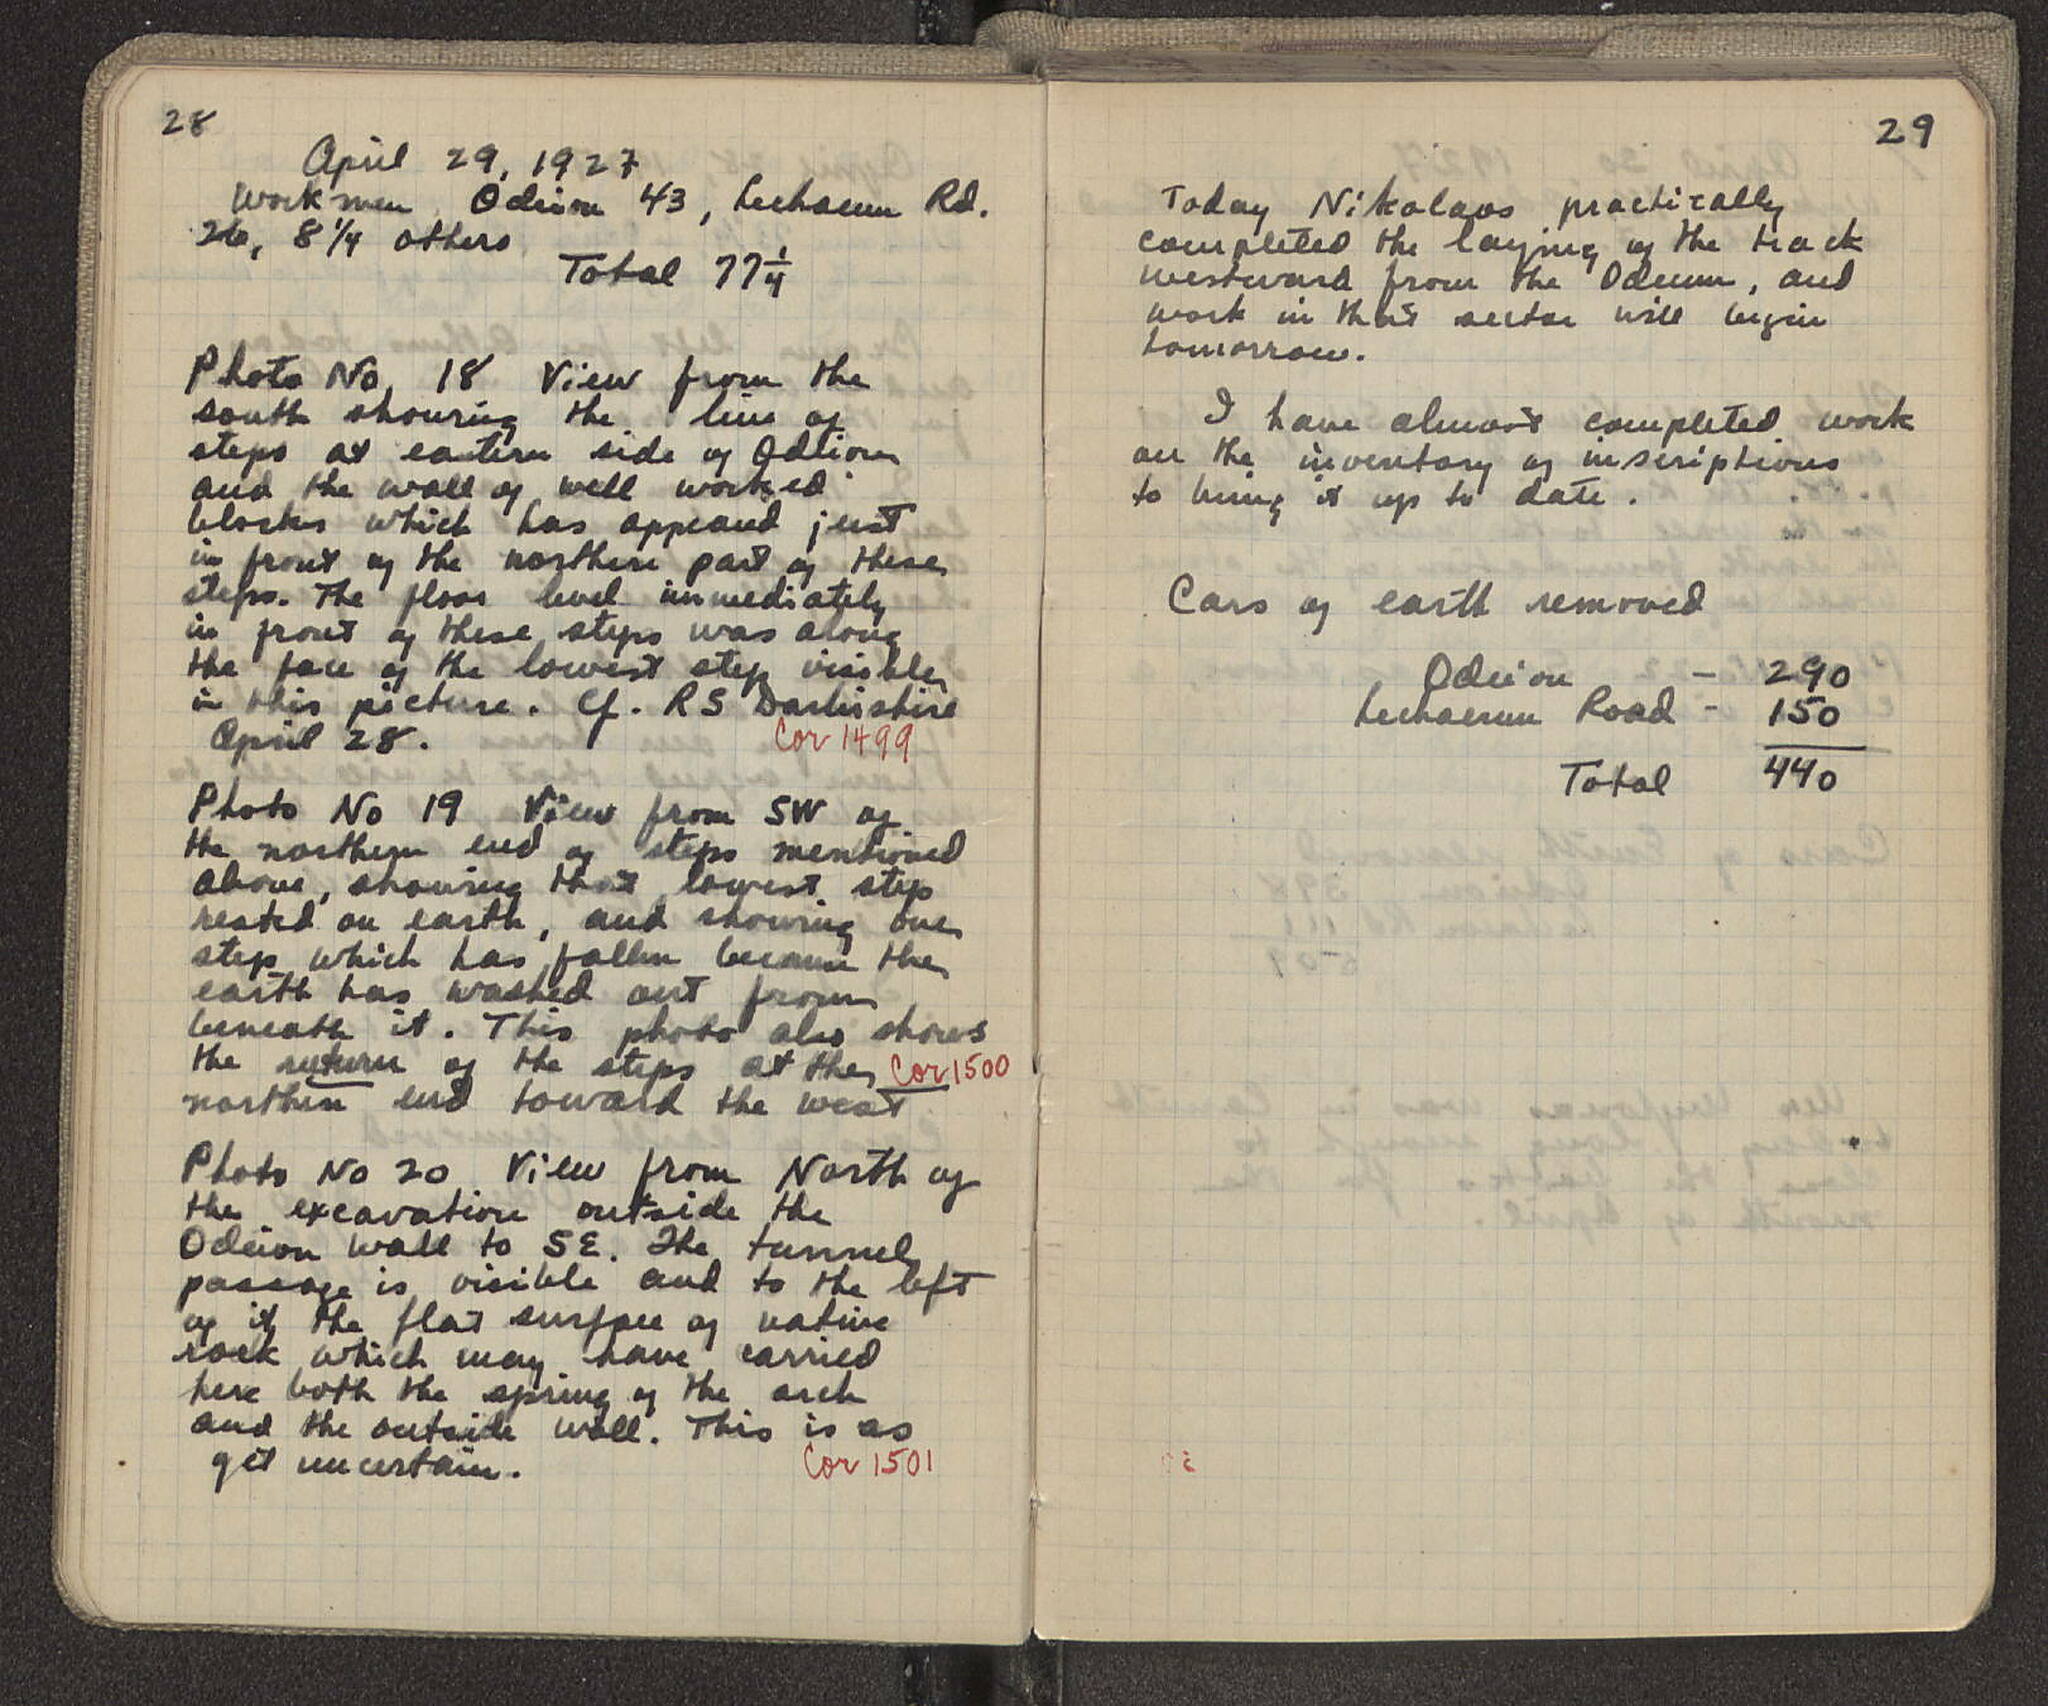 28
April 29, 1927
Workmen Odeion 43, Lechaeum Rd.
26, 8 1/4 others
Total 77 1/4
Photo No. 18 View from the
south showing the line of
steps at eastern side of Odeion
and the wall of well worked
blocks which has appeared just
in front of the northern part of these
steps. The floor level immediately
in front of these steps was along
the face of the lowest step visible
in this picture. Cf. RS Darbishire
April 28. Cor 1499
Photo No 19 View from SW of
the northern end of steps mentioned
above, showing that lowest step
rested on earth, and showing one
step which has fallen because the
earth has washed out from
beneath it. This photo also shows
the return of the steps at the Cor 1500
northern end toward the west
Photo No 20 View from North of
the excavation outside the
Odeion wall to SE. The tunnel
passage is visible and to the left
of it the flat surface of native
rock which may have carried
here both the spring of the arch
and the outside wall. This is as
yet uncertain. Cor 1501
29
Today Nikolaos practically
completed the laying of the track
westward from the Odeum, and
work in that sector will begin
tomorrow.
I have almost completed work
on the inventory of inscriptions
to bring it up to date.
Cars of earth removed
Odeion - 290
Lechaeum Road - 150
Total 440